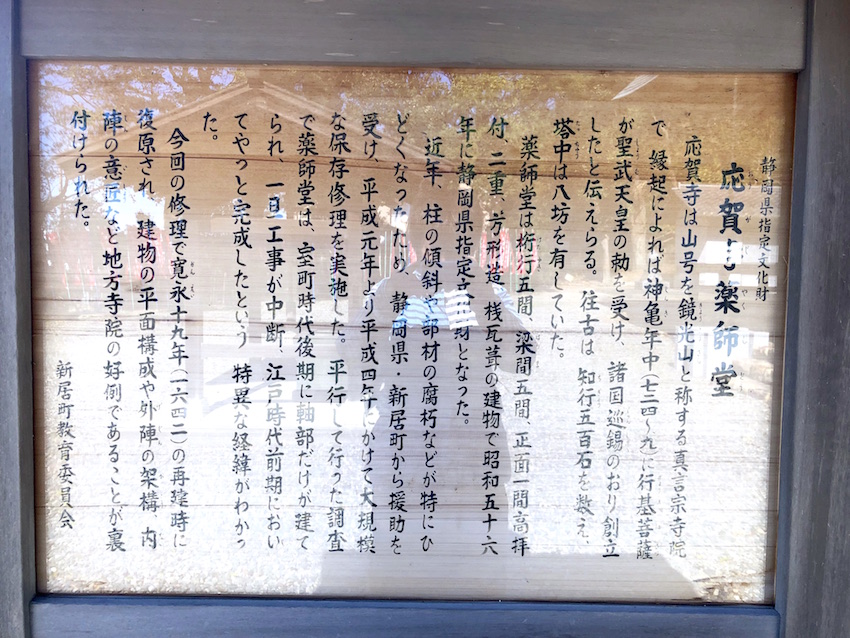 静岡県指定文化財
応賀寺薬師堂
応賀寺は山号を鏡光山と称する真言宗寺院
で 縁起によれば神亀年中(七二四～九)に行基菩薩
が聖武天皇の勅を受け、諸国巡錫のおり創立
したと伝えらる。往古は 知行五百石を数え、
塔中は八坊を有していた。
薬師堂は桁行五間、梁間五間、正面一間高拝
付、二重、方形造、桟瓦葺の建物で昭和五十六
年に静岡県指定文化財となった。
近年、柱の傾斜や部材の腐朽などが特にひ
どくなったため、静岡県・新居町から援助を
受け、平成元年より平成四年にかけて大規模
な保存修理を実施した。平行して行った調査
で薬師堂は、室町時代後期に軸部だけが建て
られ、一旦工事が中断、江戸時代前期におい
てやっと完成したという 特異な経緯がわかっ
た。
今回の修理で寛永十九年(一六四二)の再建時に
復原され、建物の平面構成や外陣の架構、内
陣の意匠など地方寺院の好例であることが裏
付けられた。
新居町教育委員会